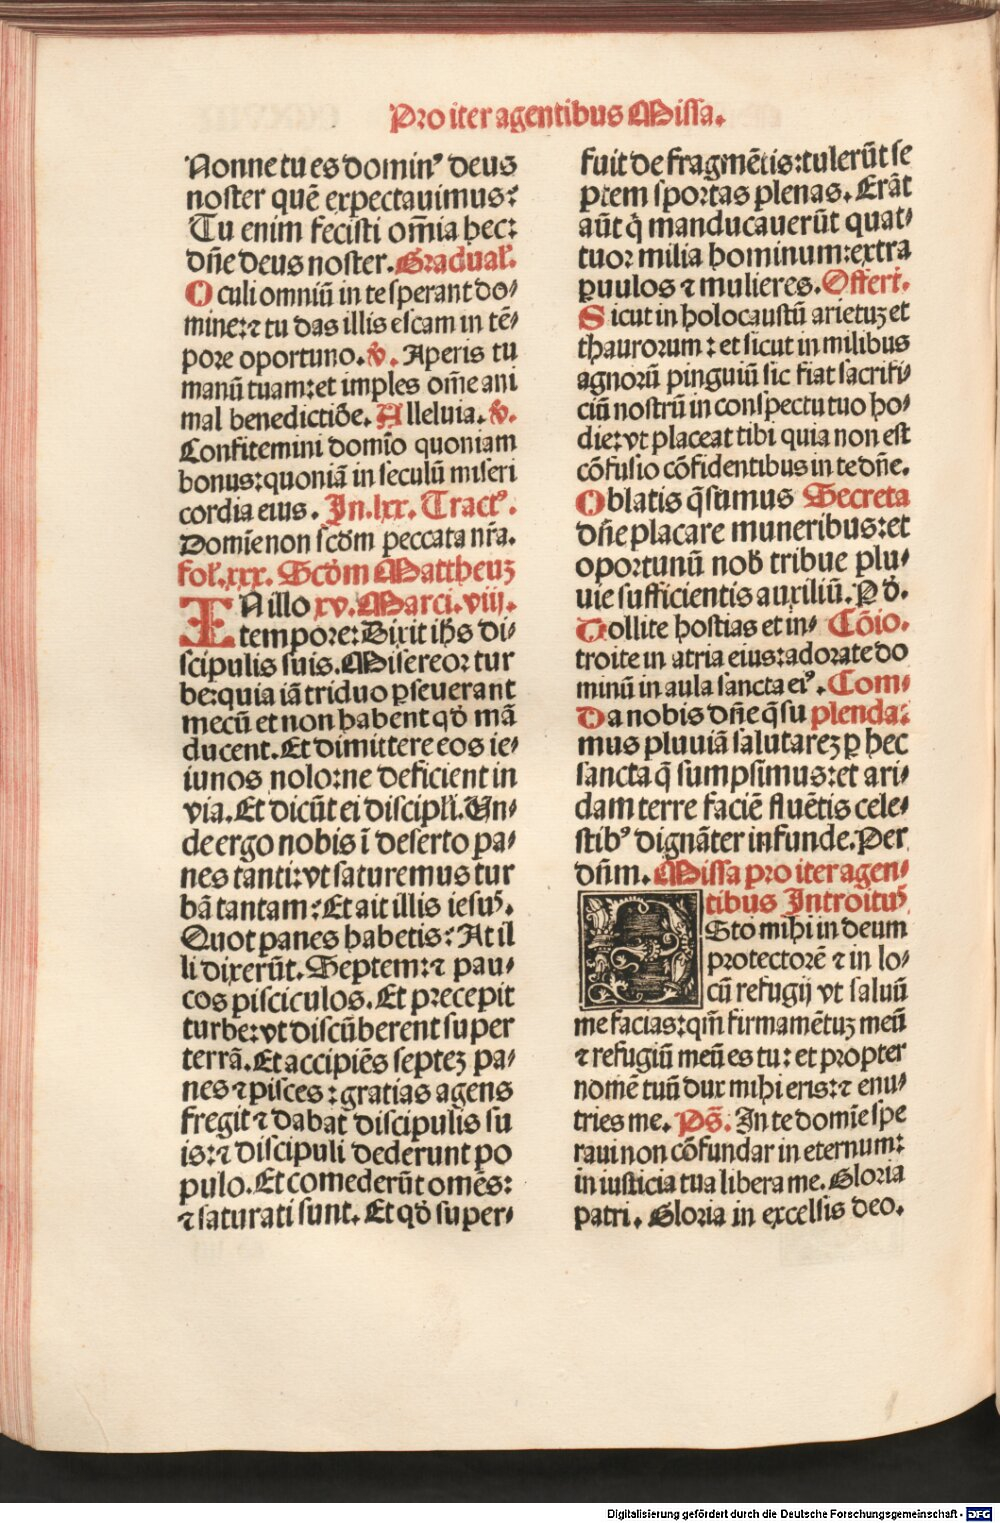 Pro iter agentibus Missa.
Nonne tu es dominꝰ deus
noster quē expectauimus:
Tu enim fecisti om̄ia hec:
dn̄e deus noster. Gradual'.
Oculi omniū in te sperant do-
mine: ⁊ tu das illis escam in tē-
pore oportuno. ꝟ. Aperis tu
manū tuam: et imples om̄e ani
mal benedictiōe. Alleluia. ꝟ.
Confitemini domīo quoniam
bonus: quoniā in seculū miseri
cordia eius. In.lxx. Tractꝰ.
Domīe non scd̄m peccata nr̄a.
fol'.xxx. Scd̄m Mattheuꝫ
IN illo xv. Marci.viij.
tempore: Dixit ih̄s di-
scipulis suis. Misereor tur
be: quia iā triduo ꝑseuerant
mecū et non habent qd̄ mā
ducent. Et dimittere eos ie-
iunos nolo: ne deficient in
via. Et dicūt ei discipl'i. Vn-
de ergo nobis ī deserto pa-
nes tanti: vt saturemus tur
bā tantam: Et ait illis iesuꝰ.
Quot panes habetis: At il
li dixerūt. Septem: ⁊ pau-
cos pisciculos. Et precepit
turbe: vt discūberent super
terrā. Et accipiēs septeꝫ pa-
nes ⁊ pisces: gratias agens
fregit ⁊ dabat discipulis su
is: ⁊ discipuli dederunt po
pulo. Et comederūt omēs:
⁊ saturati sunt. Et qd̄ super-
fuit de fragmētis: tulerūt se
ptem sportas plenas. Erāt
aūt q̇ manducauerūt quat-
tuor milia hominum: extra
ꝑuulos ⁊ mulieres. Offert'.
Sicut in holocaustū arietuꝫ et
thaurorum: et sicut in milibus
agnorū pinguiū sic fiat sacrifi-
ciū nostrū in conspectu tuo ho-
die: vt placeat tibi quia non est
cōfusio cōfidentibus in te dn̄e.
Oblatis q̄sumus Secreta
dn̄e placare muneribus: et
oportunū nob̄ tribue plu-
uie sufficientis auxiliū. P d̄.
Tollite hostias et in- Cōio.
troite in atria eius: adorate do
minū in aula sancta eiꝰ. Com-
Da nobis dn̄e q̄su plenda:
mus pluuiā salutareꝫ ꝑ hec
sancta q̄ sumpsimus: et ari-
dam terre faciē fluētis cele-
stibꝰ dignāter infunde. Per
dn̄m. Missa pro iter agen-
tibus Introituꝰ
ESto mihi in deum
protectorē ⁊ in lo-
cū refugij vt saluū
me facias: qm̄ firmamētuꝫ meū
⁊ refugiū meū es tu: et propter
nomē tuū dux mihi eris: ⁊ enu-
tries me. Ps̄. In te domīe spe
raui non cōfundar in eternum:
in iusticia tua libera me. Gloria
patri. Gloria in excelsis deo.
Digitalisierung gefördert durch die Deutsche Forschungsgemeinschaft - DFG